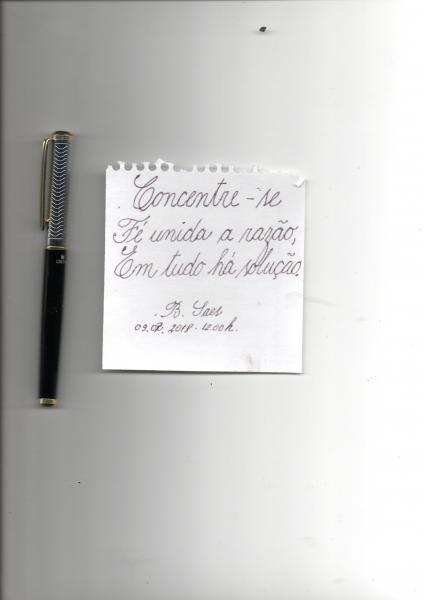 Concentre-se
Fé unida a razão,
Em tudo há solução.
B. Saes
2018 - 12:00h.